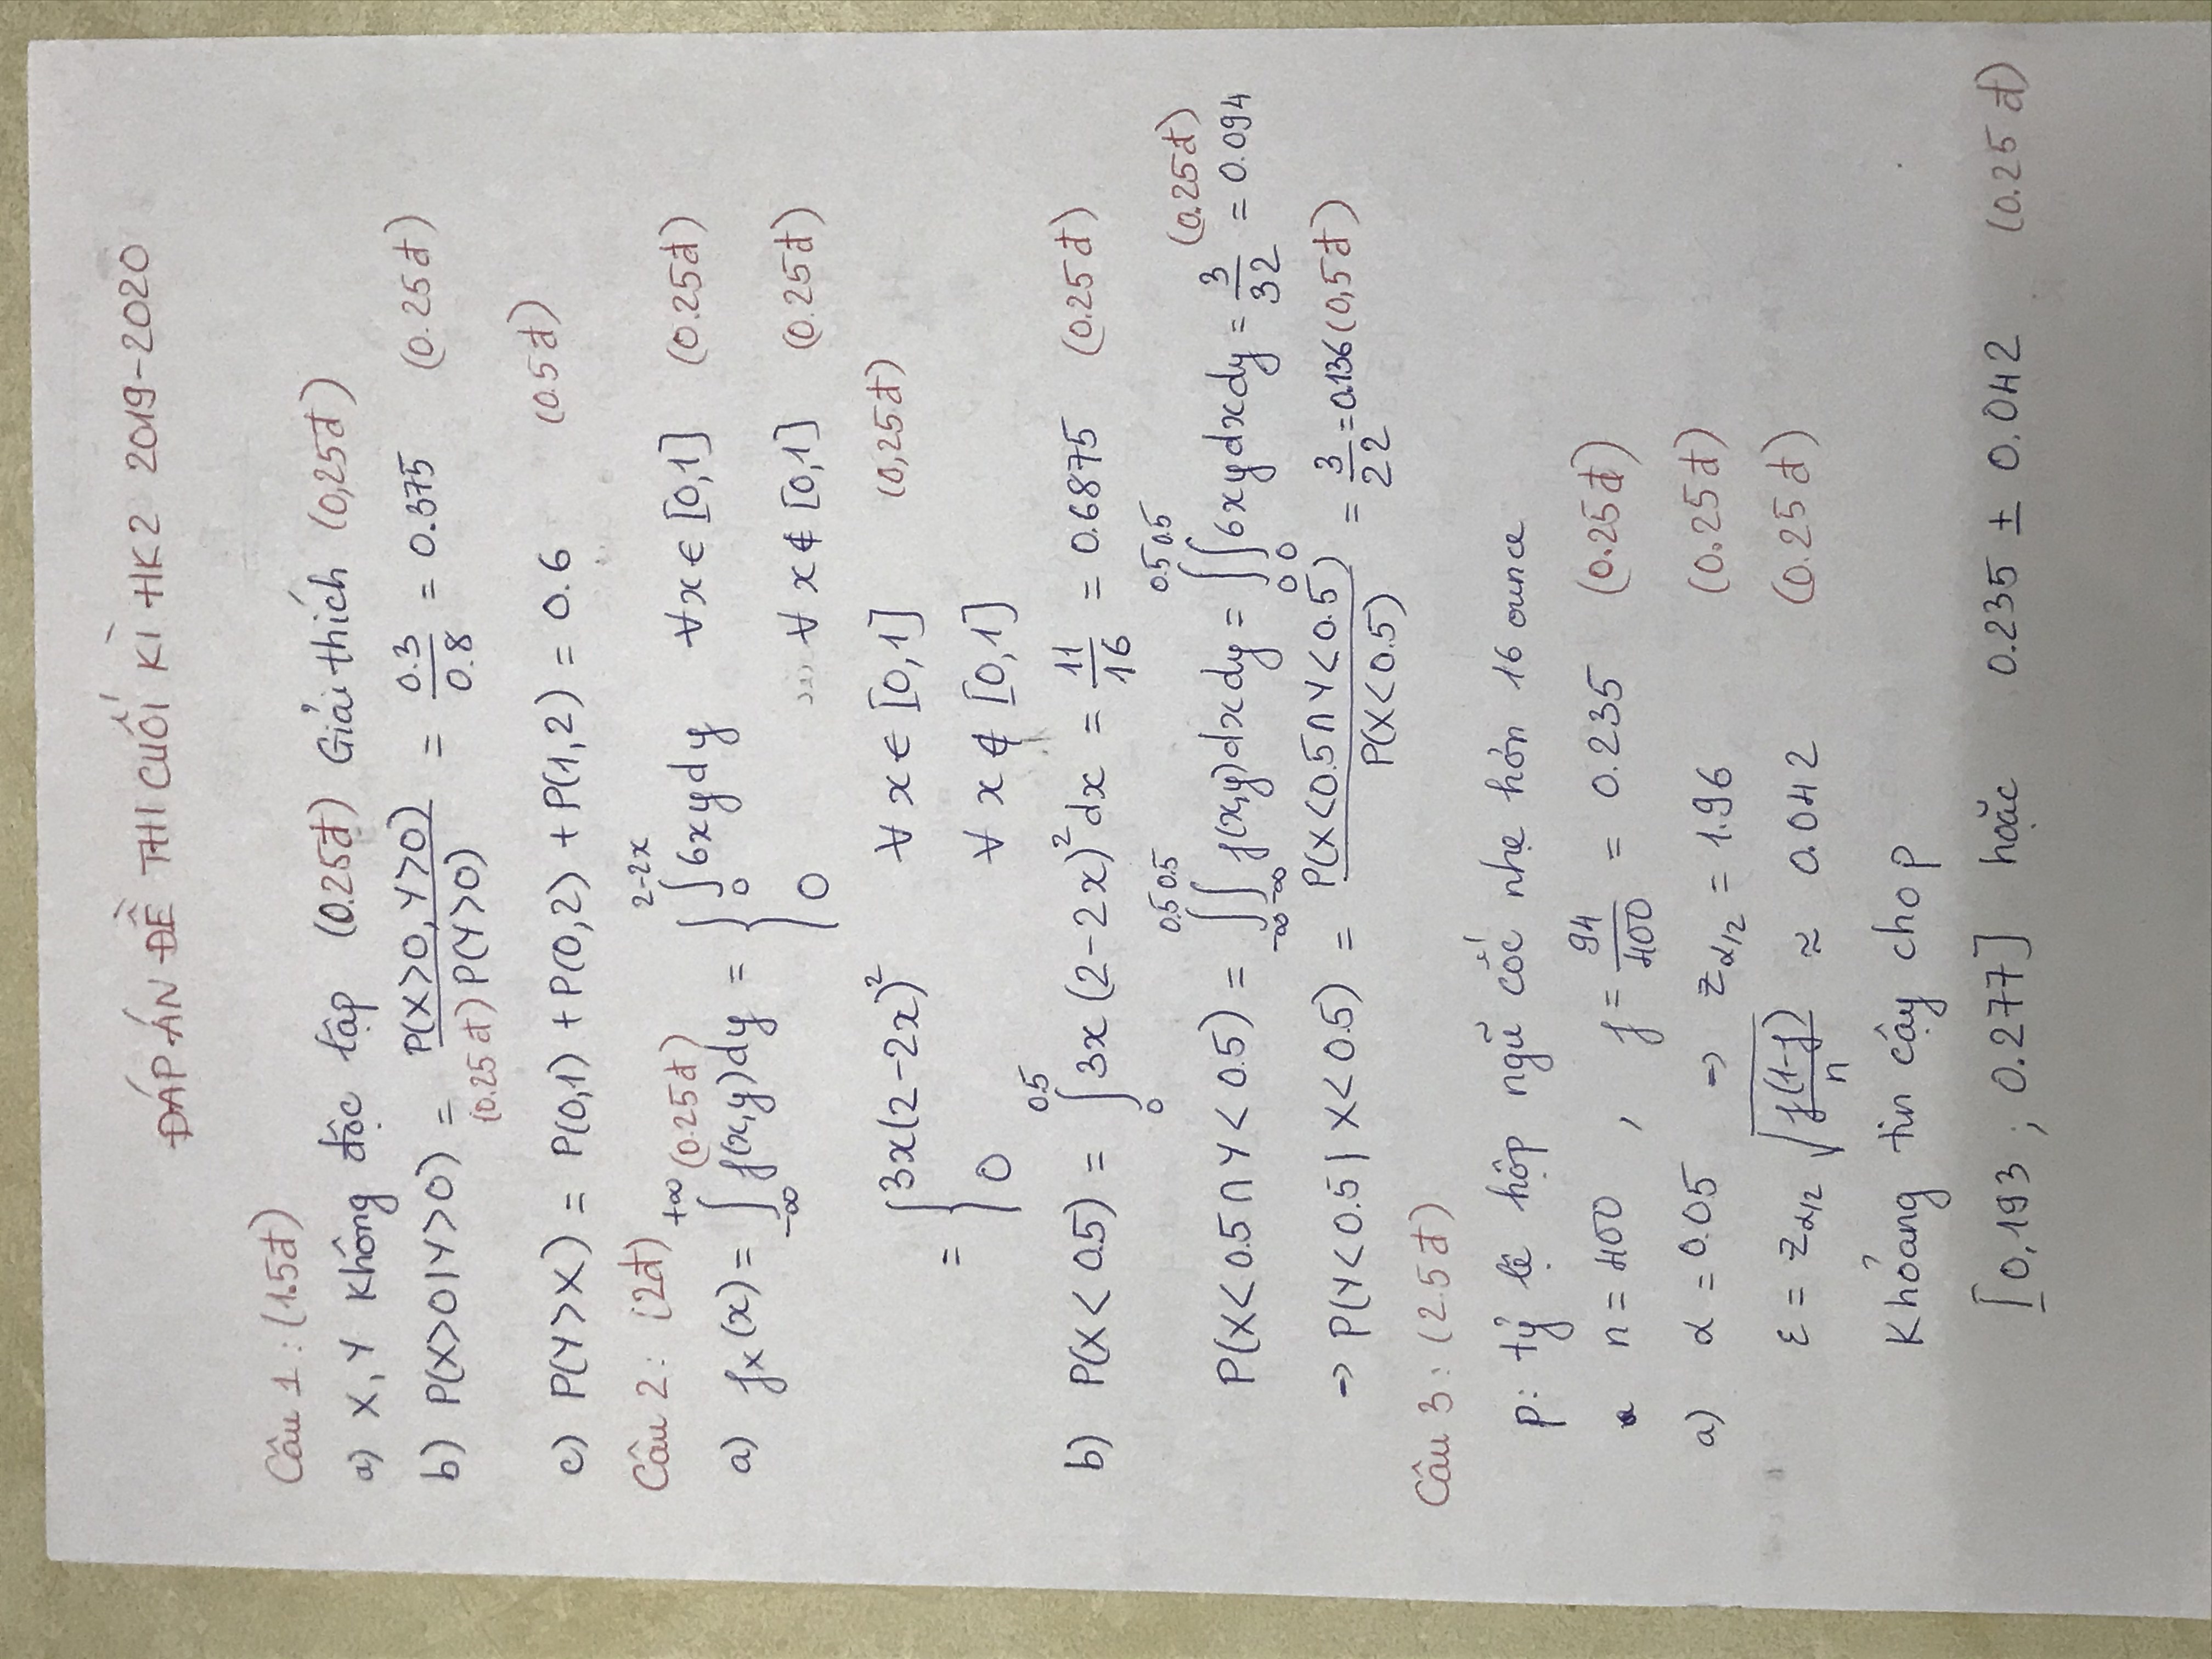 ĐÁP ÁN ĐỀ THI CUỐI KÌ HK2 2019-2020
Câu 1: (1.5đ)
a) X, Y không độc lập (0.25đ) Giải thích (0,25đ)
b) P(X>0|Y>0) = (0.25đ) P(X>0, Y>0) / P(Y>0) = 0.3/0.8 = 0.375 (0.25đ)
c) P(Y>X) = P(0,1) + P(0,2) + P(1,2) = 0.6 (0.5đ)
Câu 2: (2đ)
a) fₓ(x) = ∫_{-∞}^{+∞} (0.25đ) f(x,y)dy = { ∫_0^{2-2x} 6xydy ∀x ∈ [0,1] (0.25đ)
0 ∀ x ∉ [0,1] (0.25đ)
= { 3x(2-2x)² ∀ x ∈ [0,1] (0,25đ)
0 ∀ x ∉ [0,1]
b) P(X < 0.5) = ∫_0^{0.5} 3x (2-2x)² dx = 11/16 = 0.6875 (0.25đ)
P(X<0.5 ∩ Y<0.5) = ∫_{-∞}^{0.5} ∫_{-∞}^{0.5} f(x,y)dxdy = ∫_0^{0.5} ∫_0^{0.5} 6xydxdy = 3/32 = 0.094 (0.25đ)
→ P(Y<0.5 | X<0.5) = P(X<0.5 ∩ Y<0.5) / P(X<0.5) = 3/22 = 0.136 (0,5đ)
Câu 3: (2.5đ)
p: tỷ lệ hộp ngũ cốc nhẹ hơn 16 ounce
n = 400 , f = 94/400 = 0.235 (0.25đ)
a) α = 0.05 → z_{α/2} = 1.96 (0.25đ)
ε = z_{α/2} √(f(1-f)/n) ≈ 0.042 (0.25đ)
Khoảng tin cậy cho p
[0,193 ; 0.277] hoặc 0.235 ± 0.042 (0.25đ)